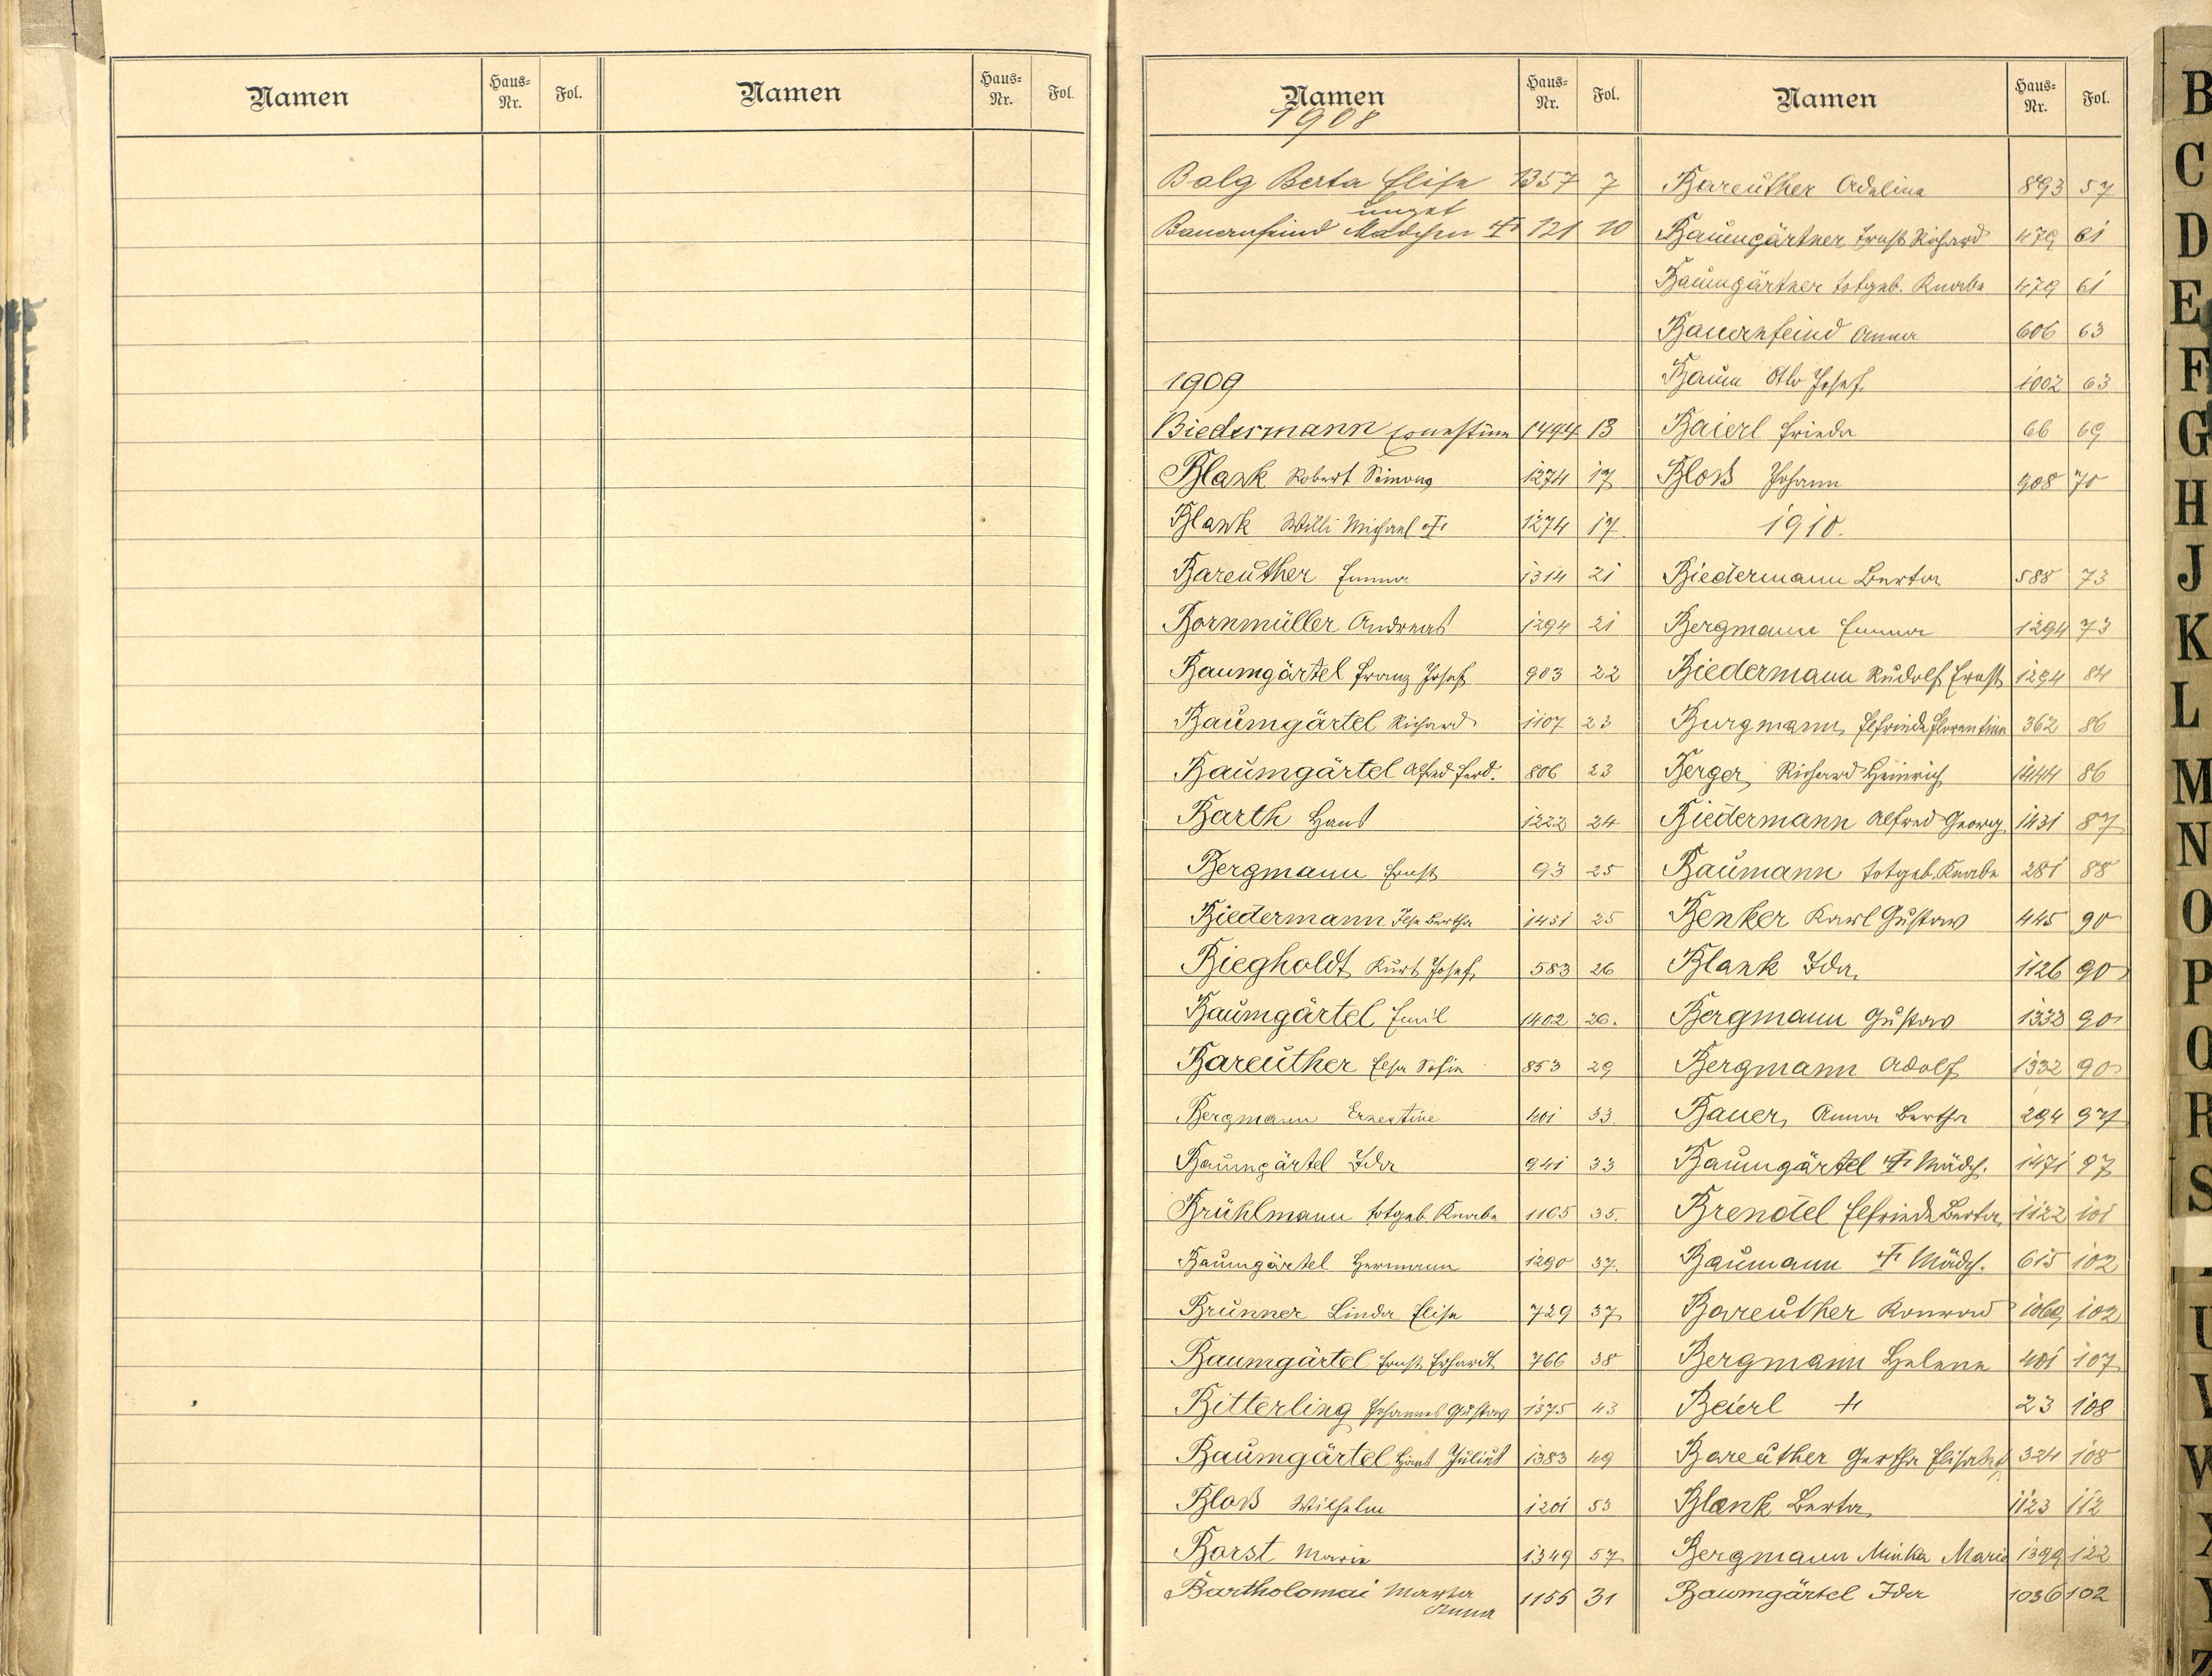 Namen Haus-Nr. Fol. Namen Haus-Nr. Fol.
Namen Haus-Nr. Fol.
1908
Balg Berta Elise 1357 7
unget
Bauernfeind Mädchen † 121 10
1909
Biedermann Ernestine 1494 13
Blank Robert Simong 1274 17
Blank Willi Michael † 1274 17.
Bareuther Emma 1314 21
Bornmüller Andreas 1294 21
Baumgärtel Franz Josef 903 22
Baumgärtel Richard 1107 23
Baumgärtel Alfred Ferd. 806 23
Barth Hans 1222 24
Bergmann Ernst 93 25
Biedermann Ilse Bertha 1431 25
Biegholdt Kurt Josef 583 26
Baumgärtel Emil 1402 26.
Bareuther Elsa Sofie 853 29
Bergmann Ernestine 401 33.
Baumgärtel Ida 941 33
Brühlmann totgeb Knabe 1105 35.
Baumgärtel Hermann 1290 37.
Brunner Linda Elise 729 37
Baumgärtel Ernst Erhardt 766 38
Bitterling Johannes Gustav 1375 43
Baumgärtel Hans Julius 1383 49
Bloß Wilhelm 1201 53
Borst Marie 1349 57
Bartholomai Martha 1155 31
Anna
Namen Haus-Nr. Fol.
Bareuther Adeline 893 57
Baumgärtner Ernst Richard 479 61
Baumgärtner totgeb. Knabe 479 61
Bauernfeind Anna 606 63
Baum Otto Josef 1002 63
Baierl Frieda 66 69
Bloß Johann 908 70
1910.
Biedermann Berta 588 73
Bergmann Emma 1294 73
Biedermann Rudolf Ernst 1294 84
Burgmann Elfriede Florentine 362 86
Berger, Richard Heinrich 1444 86
Biedermann Alfred Georg 1431 87
Baumann totgeb. Knabe 281 88
Benker Karl Gustav 445 90
Blank Ida 1126 90
Bergmann Gustav 1332 90
Bergmann Adolf 1332 90
Bauer, Anna Bertha 294 97
Baumgärtel † Mädch. 1471 97
Brendel Elfriede Berta 1122 101
Baumann † Mädch. 615 102
Bareuther Konrad 1069 102
Bergmann Helene 401 107
Beierl † 23 108
Bareuther Gertha Elisabet 324 108
Blank Berta 1123 112
Bergmann Minka Marie 1399 122
Baumgärtel Ida 1036 102
B
C
D
E
F
G
H
J
K
L
M
N
O
P
Q
R
S
U
V
W
X
Y
Z